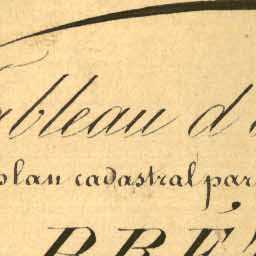 Tableau d'
plan cadastral par
PRÉ